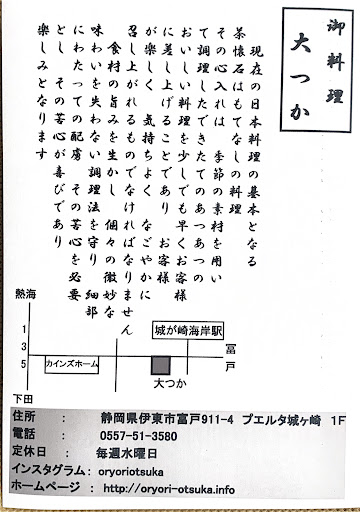 御料理
大つか
現在の日本料理の基本となる
茶懐石はもてなしの料理
その心入れは　季節の素材を用い
て調理したできたてのあつあつの
おいしい料理を少しでも早くお客様
に差し上げることであり　お客様
が楽しく　気持ちよく　なごやかに
召し上がれるものでなければなりません
食材の旨みを生かし　個々の微妙な
味わいを失わない調理法を守り　細部
にわたっての配慮　その苦心を必要
とし　その苦心が喜びであり
楽しみとなります
熱海
1
3
5
下田
城が崎海岸駅
カインズホーム
大つか
富戸
住所　：　静岡県伊東市富戸911-4　プエルタ城ヶ崎　1F
電話　：　0557-51-3580
定休日　：　毎週水曜日
インスタグラム: oryoriotsuka
ホームページ　：　http://oryori-otsuka.info